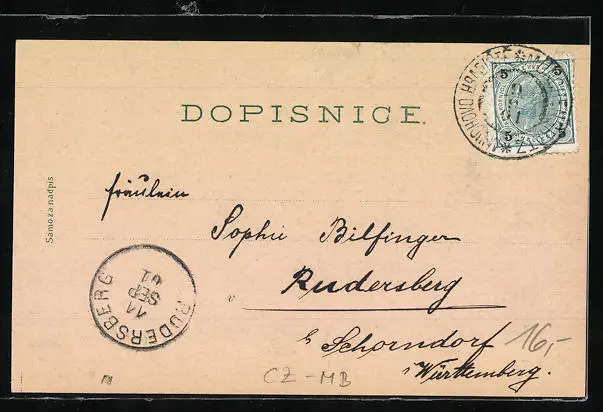 DOPISNICE.
Samo za nadpis
Fräulein
Sophie Bilfinger
Rudersberg
Schorndorf
Württemberg.
RUDERSBERG
11
SEP
01
5
5
16,-
CZ-MB